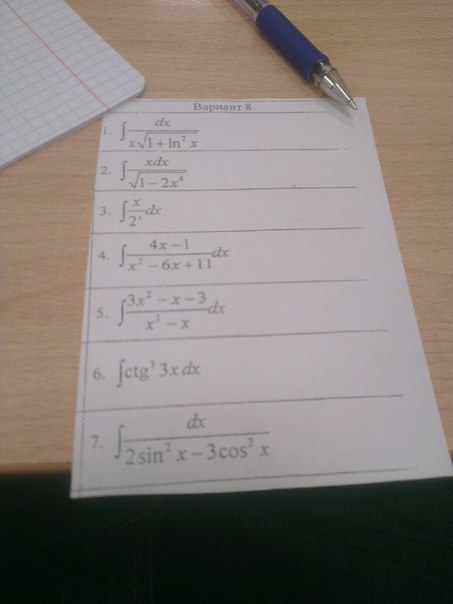 Вариант 8
1. ∫ dx / (x√(1 + ln² x))
2. ∫ xdx / √(1 − 2x⁴)
3. ∫ x / 2ˣ dx
4. ∫ (4x − 1) / (x² − 6x + 11) dx
5. ∫ (3x² − x − 3) / (x³ − x) dx
6. ∫ctg³ 3x dx
7. ∫ dx / (2 sin² x − 3 cos² x)